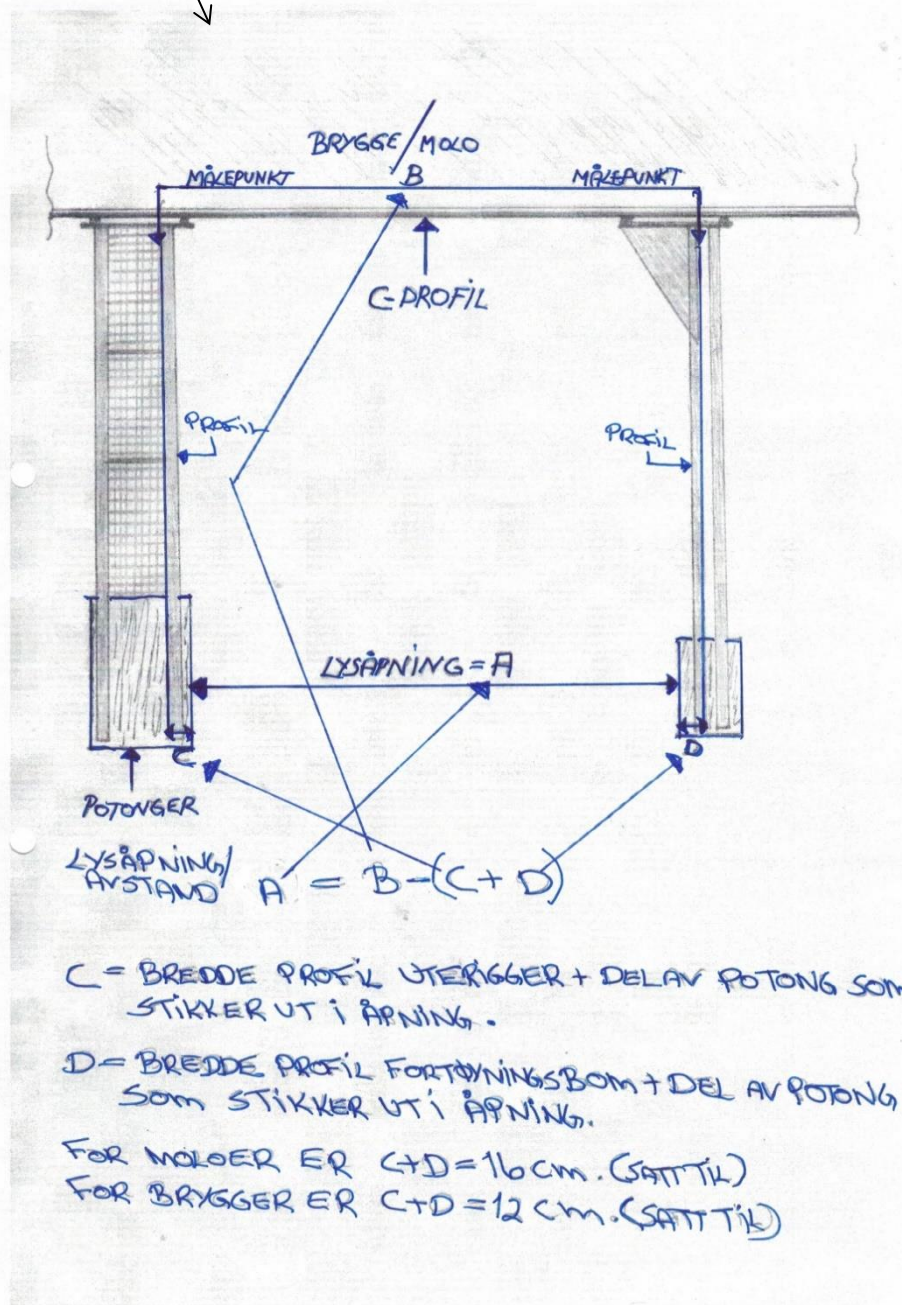 BRYGGE/MOLO
MÅLEPUNKT
B
MÅLEPUNKT
C-PROFIL
PROFIL
PROFIL
LYSÅPNING = A
C
D
POTONGER
LYSÅPNING/
AVSTAND
A = B-(C+D)
C = BREDDE PROFIL UTERIGGER + DEL AV POTONG SOM
STIKKER UT I ÅPNING.
D = BREDDE PROFIL FORTØYNINGSBOM + DEL AV POTONG
SOM STIKKER UT I ÅPNING.
FOR MOLOER ER C+D = 16 cm. (SATT TIL)
FOR BRYGGER ER C+D = 12 cm. (SATT TIL)